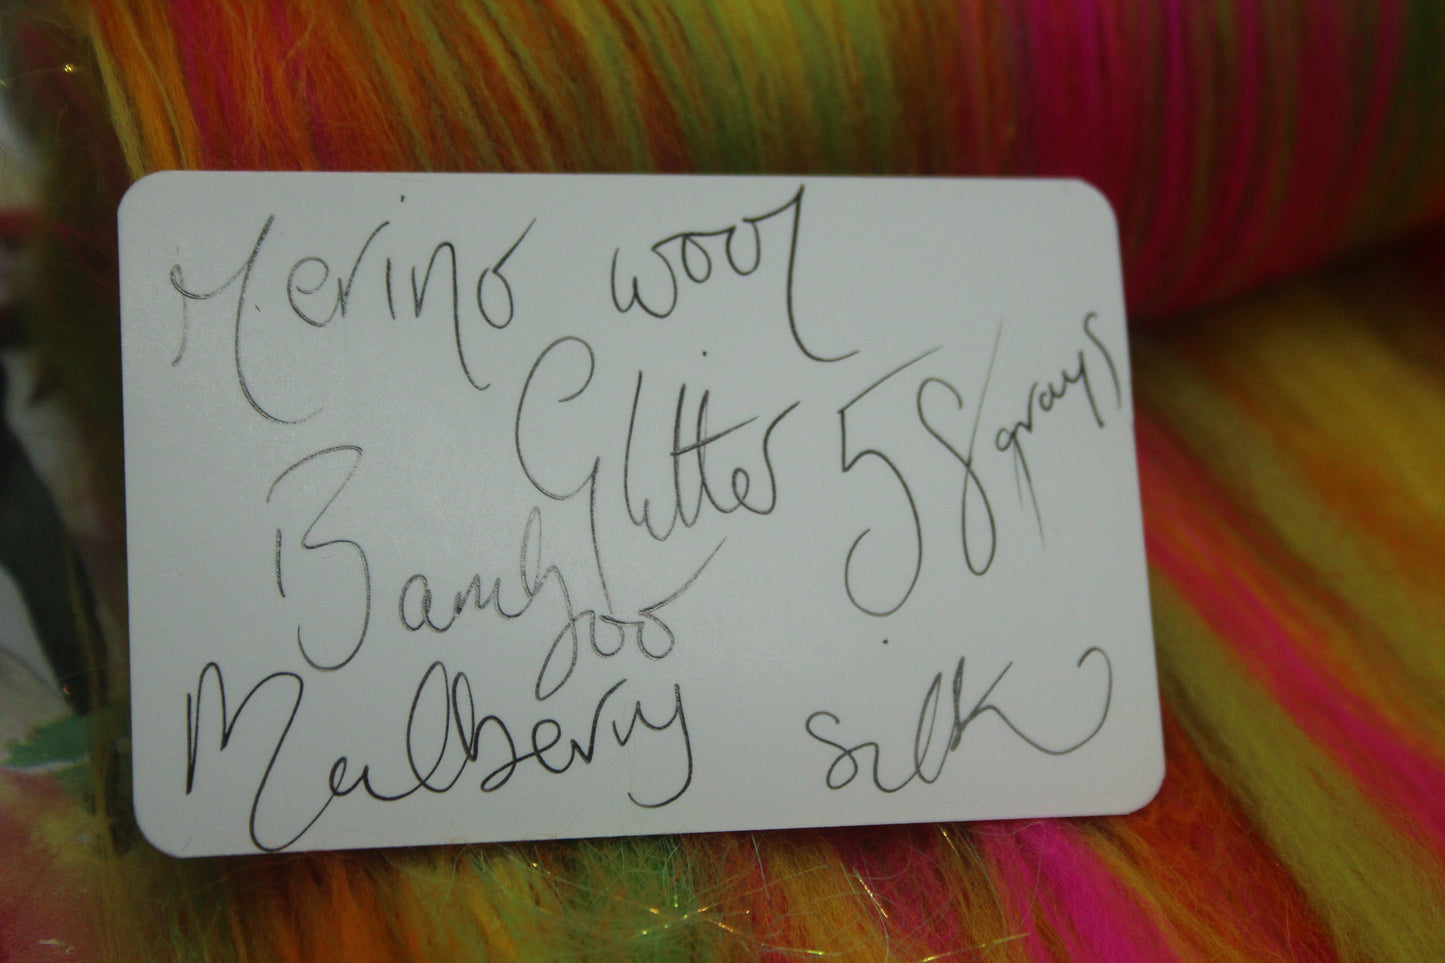 Merino wool
Glitter 58 grays
Bamboo
Mulberry silk